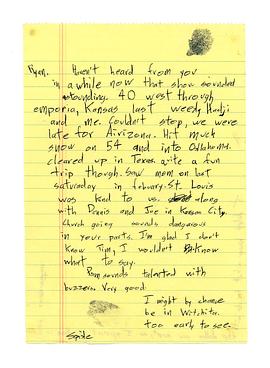 Ryan. Haven't heard from you
in a while now that show sounded
astounding. 40 west through
emporia, Kansas last week, Hadji
and me. Couldn't stop, we were
late for Airizona. Hit much
snow on 54 and into Oklahoma.
cleared up in Texas. quite a fun
trip though. Saw men on bat
saturday in febuary. St. Louis
was kind to us. along
with Dennis and Joe in Kansas City.
Church going sounds dangerous
in your parts. I'm glad I don't
know Tim, I wouldn't know
what to say.
sounds talented with
buzzers. Very good.
I might by chance
be in Witchita.
too early to see.
Spike